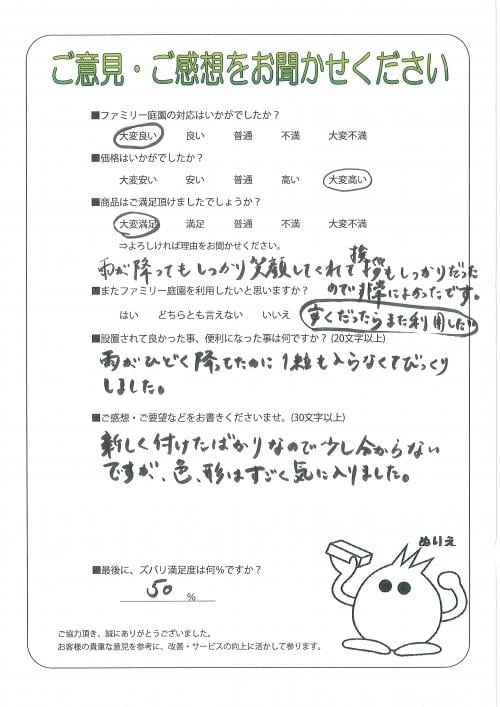 ご意見・ご感想をお聞かせください
■ファミリー庭園の対応はいかがでしたか？
大変良い 良い 普通 不満 大変不満
■価格はいかがでしたか？
大変安い 安い 普通 高い 大変高い
■商品はご満足頂けましたでしょうか？
大変満足 満足 普通 不満 大変不満
⇒よろしければ理由をお聞かせください。
雨が降ってもしっかり笑顔してくれて挨拶もしっかりだった
ので非常によかったです。
■またファミリー庭園を利用したいと思いますか？
はい どちらとも言えない いいえ 
すくだったらまた利用したい
■設置されて良かった事、便利になった事は何ですか？(20文字以上)
雨がひどく降ってたのに1粒も入らなくてびっくり
しました。
■ご感想・ご要望などをお書きくださいませ。(30文字以上)
新しく付けたばかりなので少し分からない
ですが、色、形はすごく気に入りました。
ぬりえ
■最後に、ズバリ満足度は何%ですか？
50 %
ご協力頂き、誠にありがとうございました。
お客様の貴重な意見を参考に、改善・サービスの向上に活かして参ります。